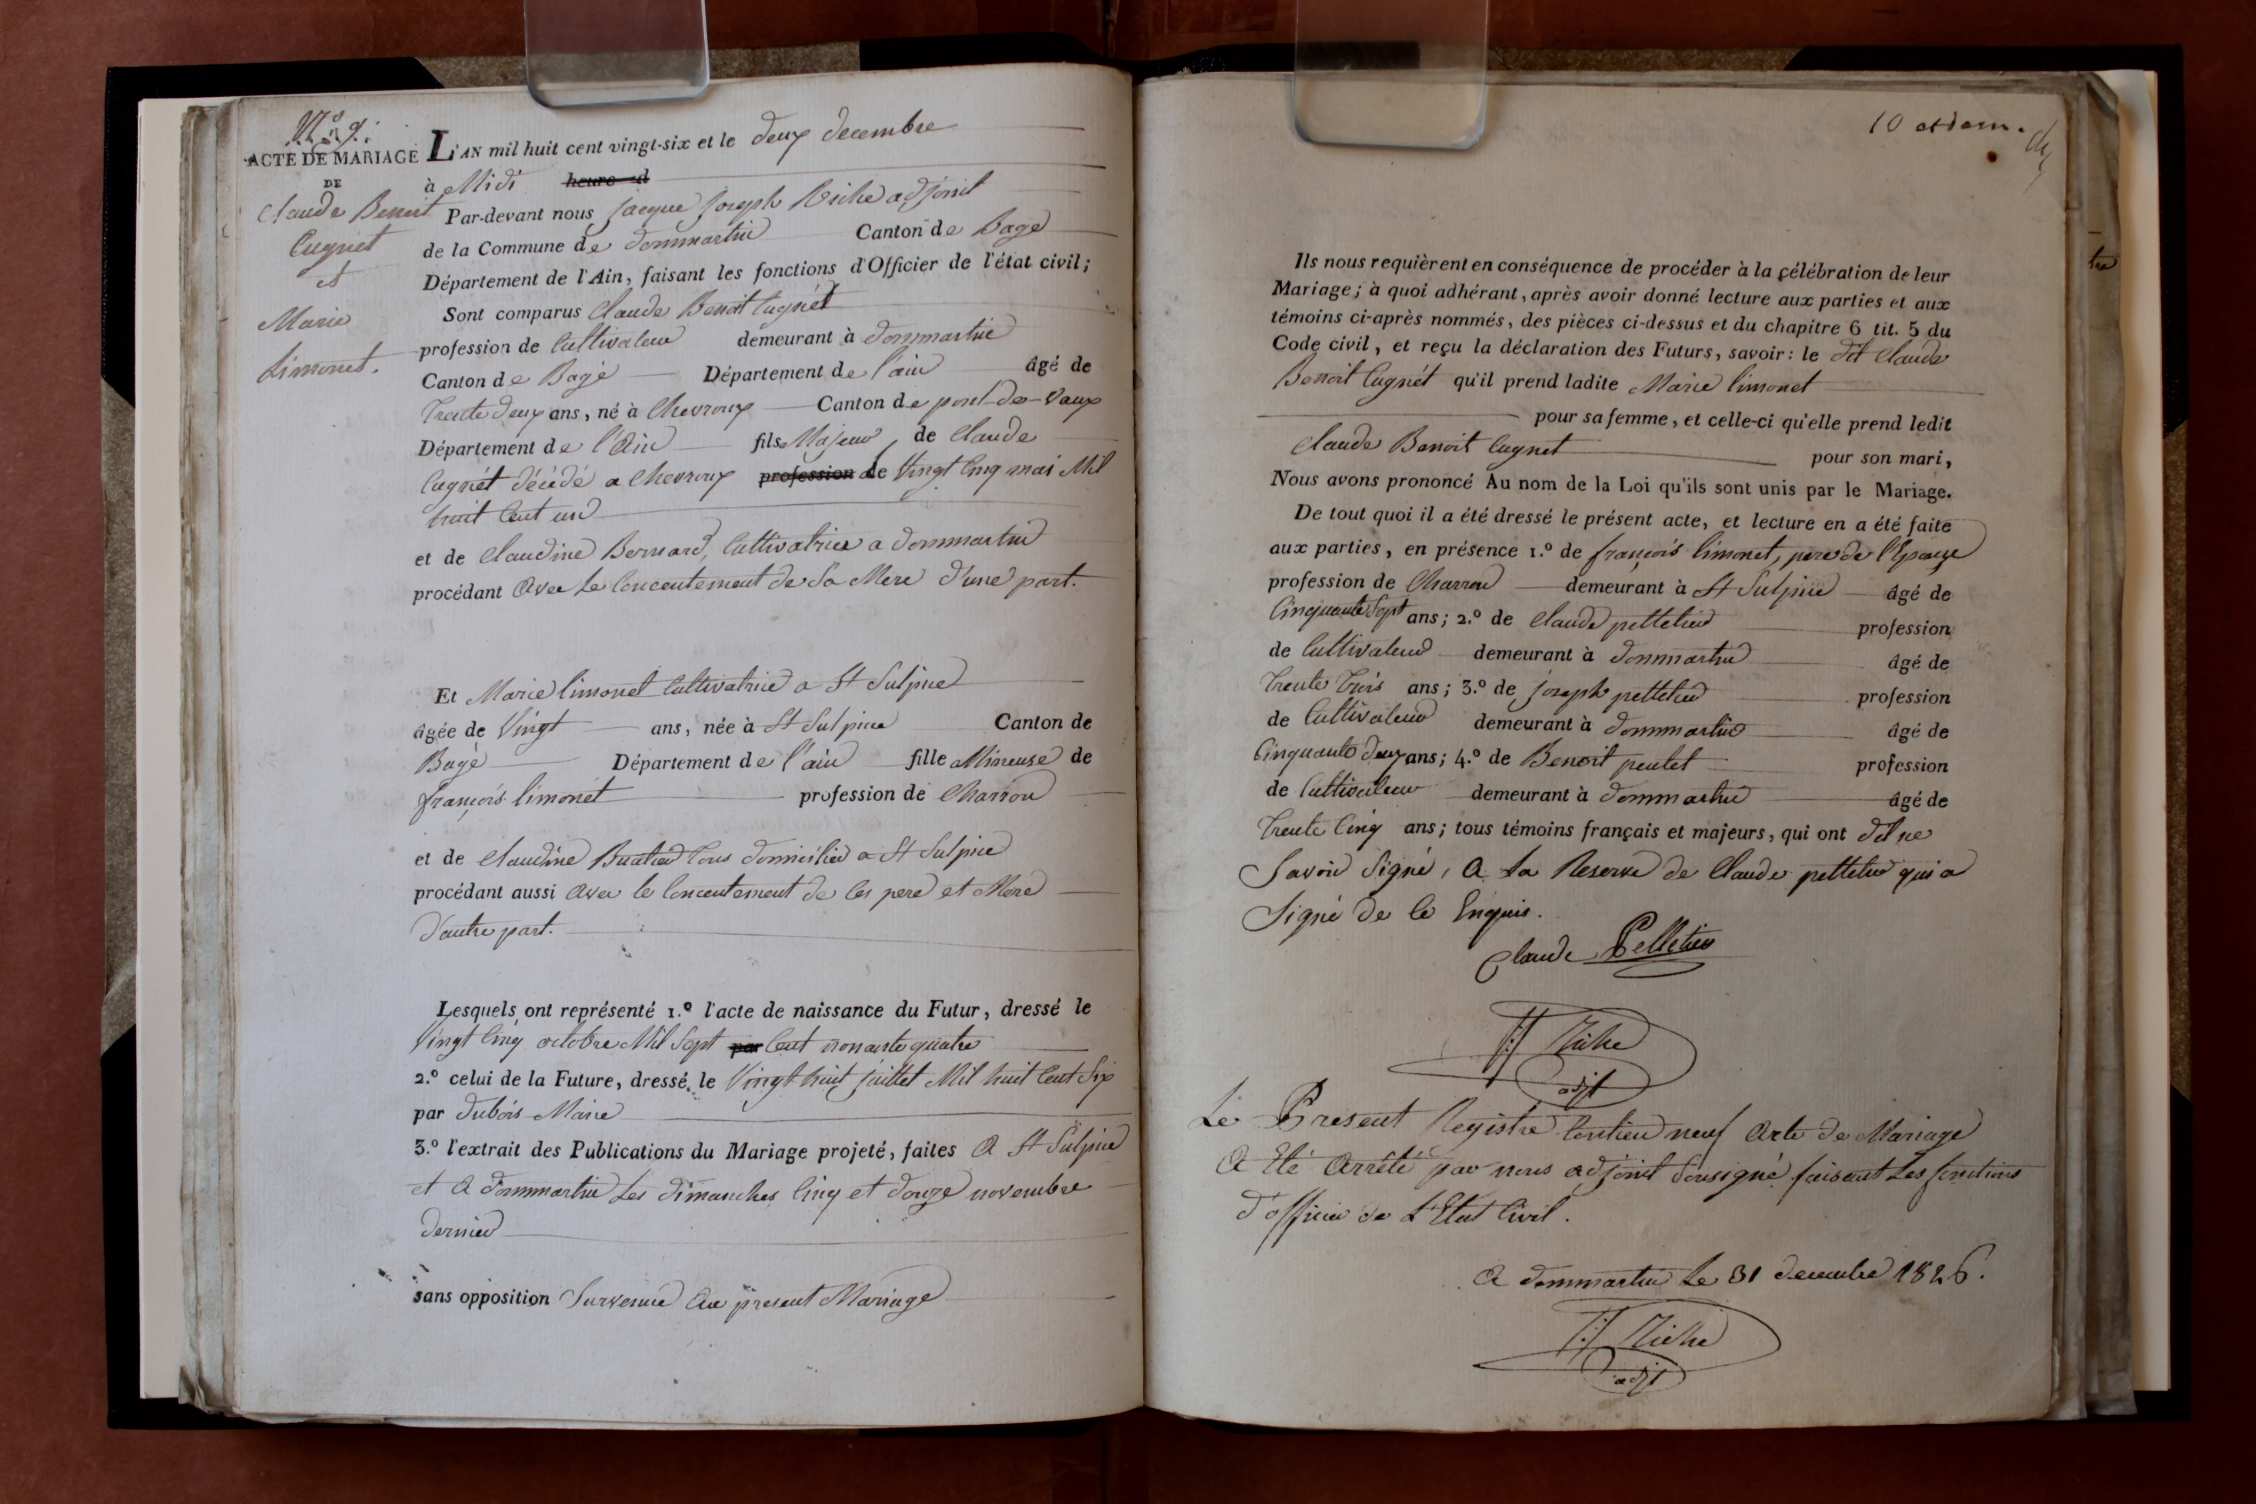 N.º 9.
ACTE DE MARIAGE
DE
Claude Benoit
Cugnet
et
Marie
Limonet.
L'AN mil huit cent vingt-six et le deux decembre
à Midi heure d
Par-devant nous jacque joseph Riche adjoint
de la Commune de dommartin Canton de Bagé
Département de l'Ain, faisant les fonctions d'Officier de l'état civil;
Sont comparus Claude Benoit Cugnét
profession de Cultivateur demeurant à dommartin
Canton de Bagé Département de l'ain âgé de
Trente deux ans, né à Chevroux Canton de pont-de-Vaux
Département de l'Ain fils Majeur, de Claude
Cugnét décédé a Chevroux profession de Vingt Cinq mai Mil
huit Cent un
et de Claudine Bernard, Cultivatrice a dommartin
procédant Avec Le Concentement de Sa Mere d'une part.
Et Marie limonet Cultivatrice a St Sulpice
âgée de Vingt ans, née à St Sulpice Canton de
Bagé Département de l'ain fille Mineuse de
françois limonét profession de Charron
et de Claudine Buatier tous domicilié a St Sulpice
procédant aussi Avec le Concentement de Ces pere et Mere
d'autre part.
Lesquels ont représenté 1.º l'acte de naissance du Futur, dressé le
Vingt Cinq octobre Mil Sept par Cent nonante quatre
2.º celui de la Future, dressé le Vingt huit juillet Mil huit Cent Six
par dubois Maire
3.º l'extrait des Publications du Mariage projeté, faites A St Sulpice
et A dommartin Les dimanches Cinq et douze novembre
dernier
sans opposition Survenue Au present Mariage
10 et dern.
Ils nous requièrent en conséquence de procéder à la célébration de leur
Mariage; à quoi adhérant, après avoir donné lecture aux parties et aux
témoins ci-après nommés, des pièces ci-dessus et du chapitre 6 tit. 5 du
Code civil, et reçu la déclaration des Futurs, savoir: le dit Claude
Benoit Cugnét qu'il prend ladite Marie limonet
pour sa femme, et celle-ci qu'elle prend ledit
Claude Benoit Cugnet pour son mari,
Nous avons prononcé Au nom de la Loi qu'ils sont unis par le Mariage.
De tout quoi il a été dressé le présent acte, et lecture en a été faite
aux parties, en présence 1.º de françois limonet, pere de l'Epouse
profession de Charron demeurant à St Sulpice âgé de
Cinquante Sept ans; 2.º de Claude pelletier profession
de Cultivateur demeurant à dommartin âgé de
Trente Trois ans; 3.º de joseph pelletier profession
de Cultivateur demeurant à dommartin âgé de
Cinquante deux ans; 4.º de Benoit peulet profession
de Cultivateur demeurant à dommartin âgé de
Trente Cinq ans; tous témoins français et majeurs, qui ont dit ne
Savoir Signé, A La Reserve de Claude pelletier qui a
Signé de Ce Enquis.
Claude Pelletier
JJ Riche
adjt
Le Present Registre Contien neuf Acte de Mariage
A Eté Arrêté par nous adjoint Sousigné faisant Les fonctions
d'officier de L'Etat Civil.
A dommartin Le 31 decembre 1826.
JJ Riche
adjt